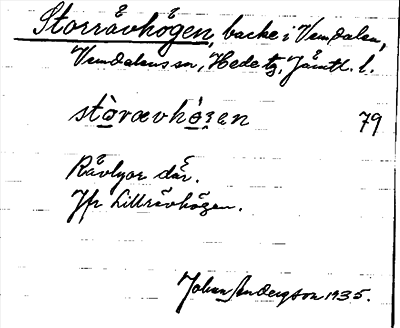 Storråvhögen, backe i Vemdalen,
Vemdalens sn, Hede tg, Jämtl. l.
stòrævhö̀gen 79
Råvlyor där.
Jfr Lillråvhögen.
Johan Andersson 1935.